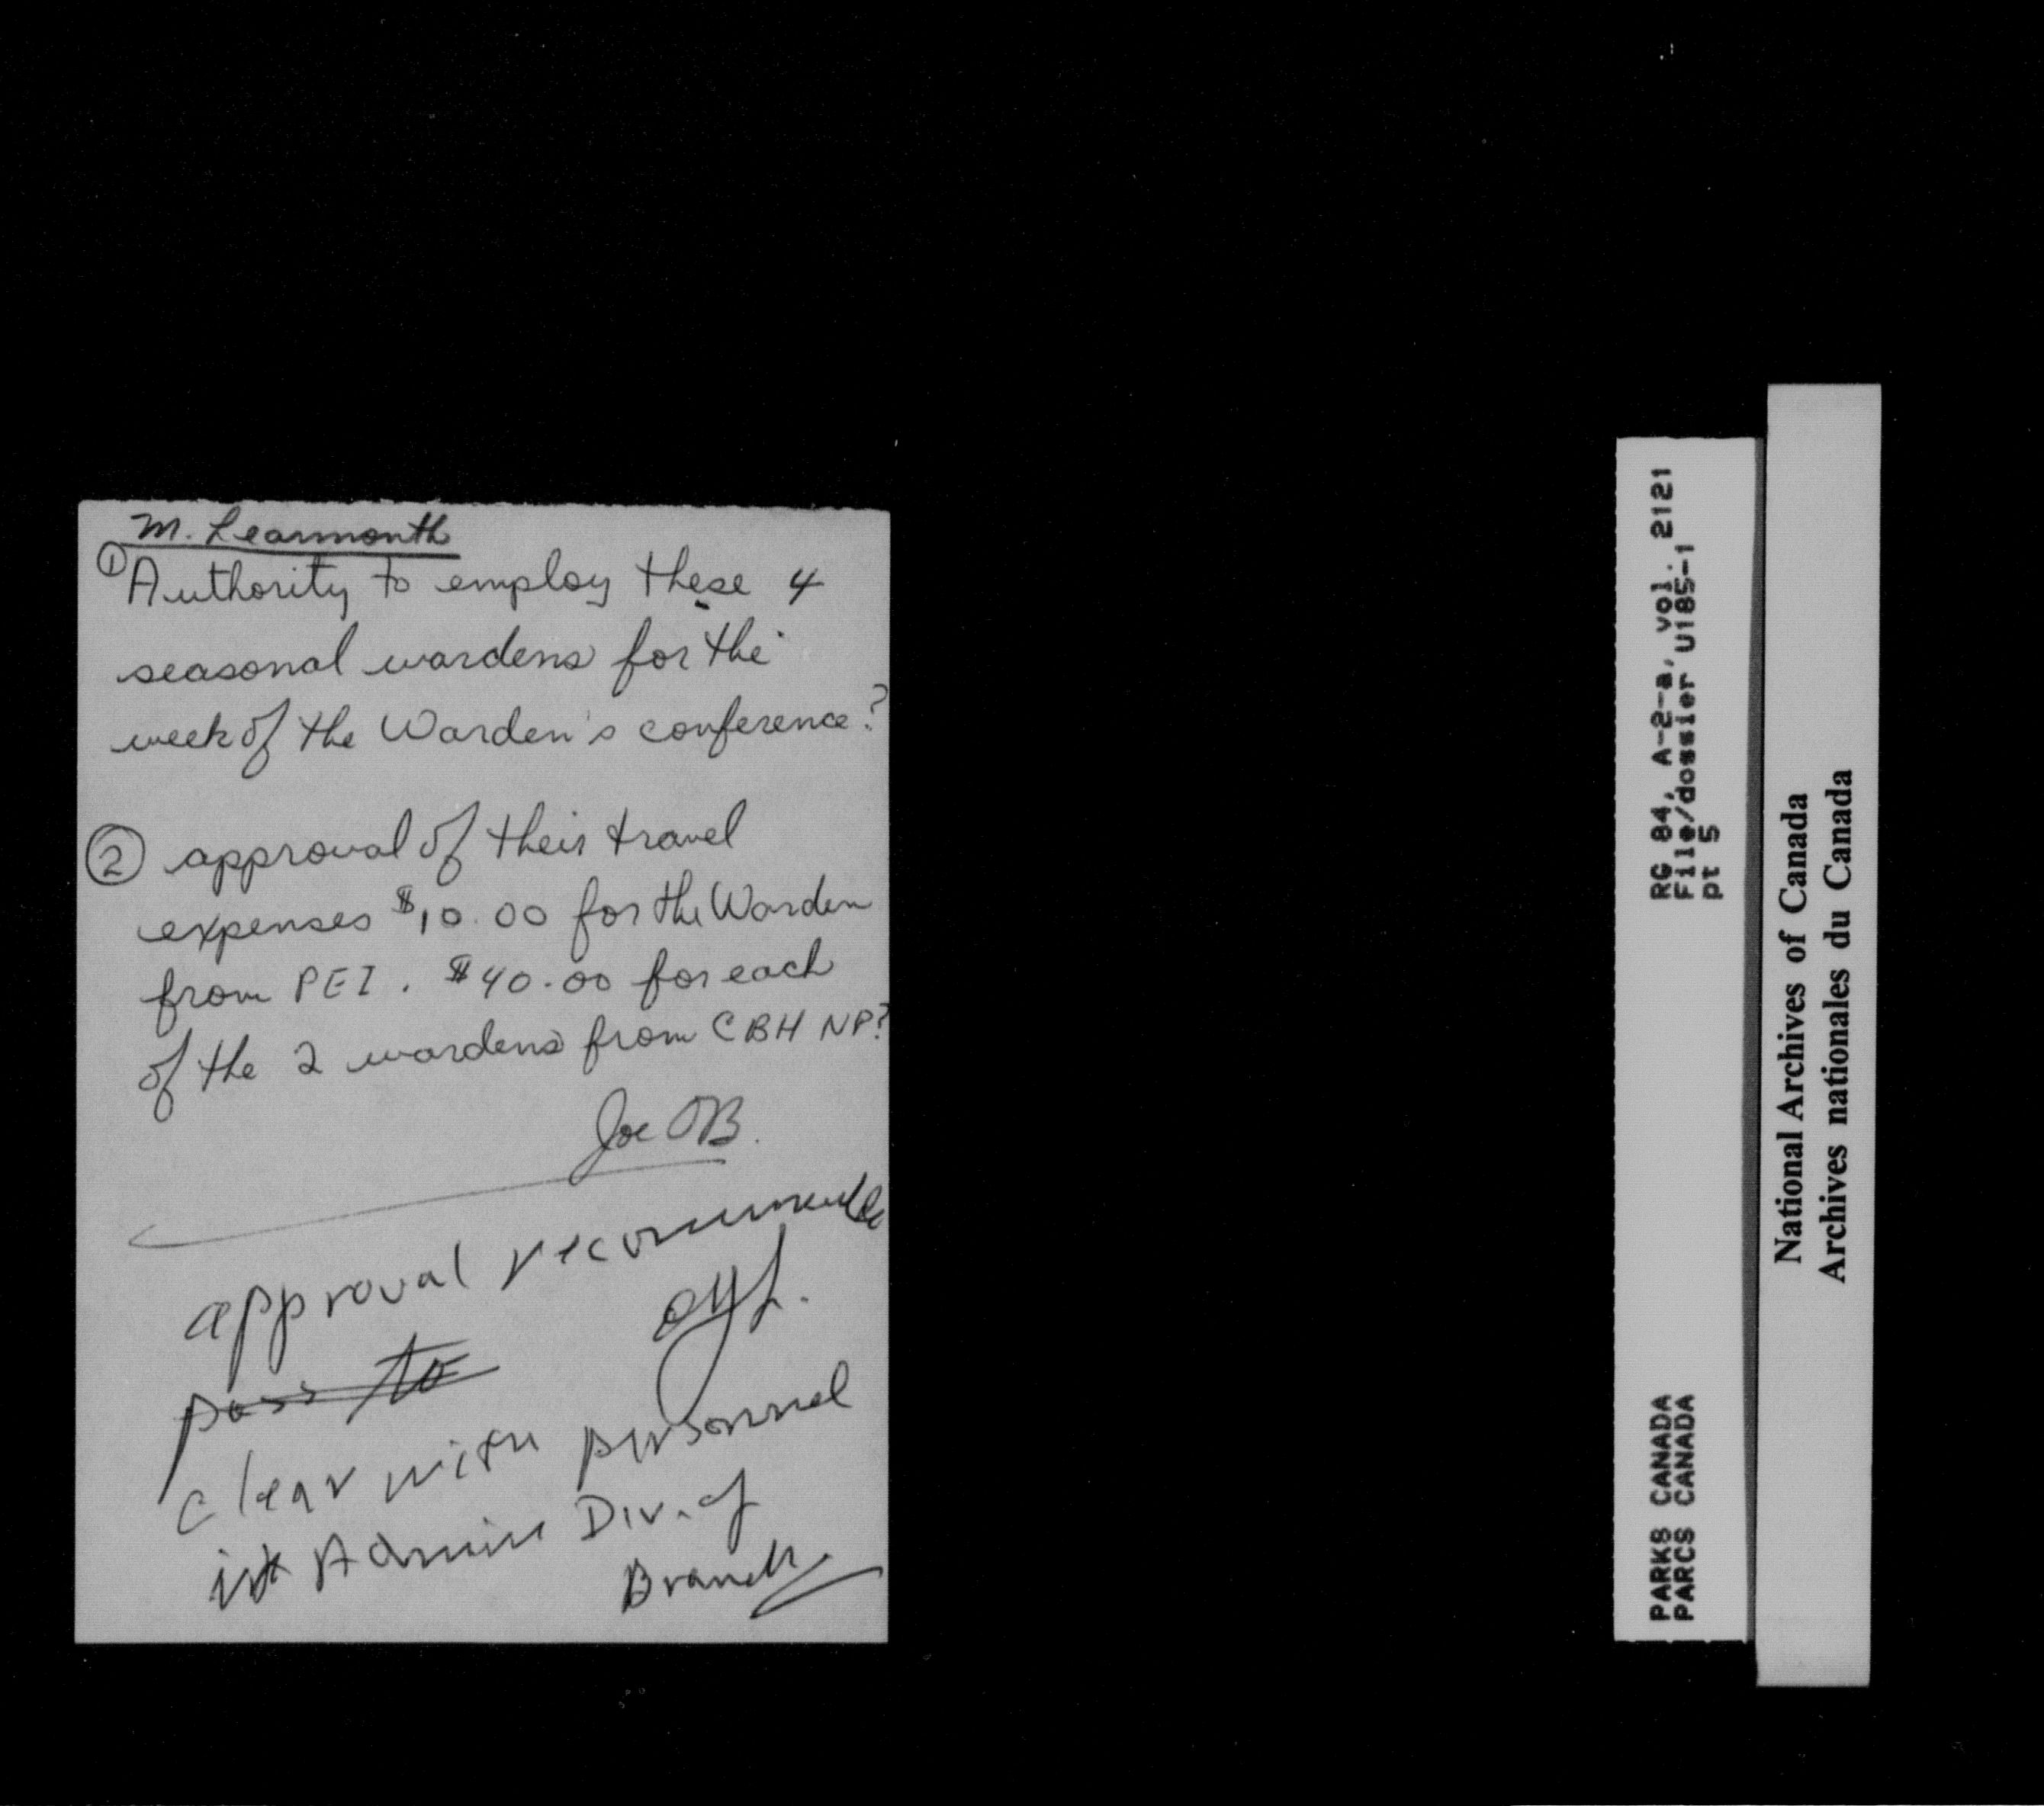 M. Learmonth
① Authority to employ these 4
seasonal wardens for the
week of the Warden's conference?
② approval of their travel
expenses $10.00 for the Warden
from PEI. $40.00 for each
of the 2 wardens from CBH NP?
Joe OB.
approval recommended
pass to
clear with personnel
in Admin Div. of
Branch
RG 84, A-2-a, vol. 2121
File/dossier U185-1
pt 5
PARKS CANADA
PARCS CANADA
National Archives of Canada
Archives nationales du Canada